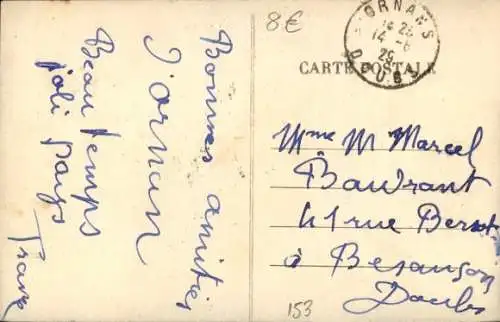 8€
ORNANS
14 28
14 - 6
29
DOUBS
CARTE POSTALE
Bonnes amitiés
d'ornan
Beau temps
joli pays
Mme M Marcel
Bavrant
41 rue
à Besançon
Doubs
153